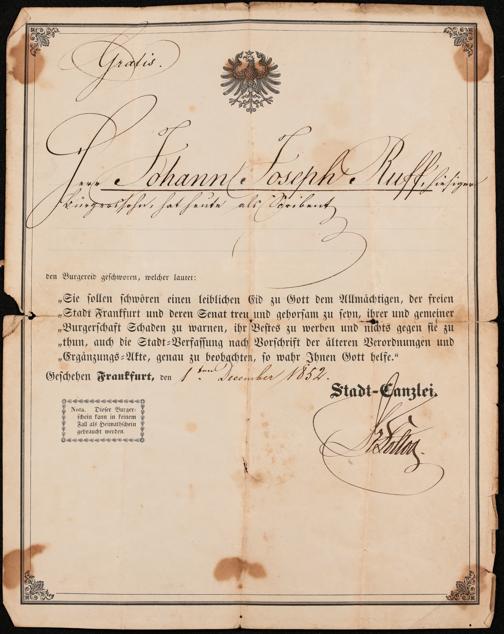 Gratis.
Herr Johann Joseph Ruff, hiesiger
Bürgerssohn, hat heute als Scribent
den Burgereid geschworen, welcher lautet:
„Sie sollen schwören einen leiblichen Eid zu Gott dem Allmächtigen, der freien
„Stadt Frankfurt und deren Senat treu und gehorsam zu seyn, ihrer und gemeiner
„Burgerschaft Schaden zu warnen, ihr Bestes zu werben und nichts gegen sie zu
„thun, auch die Stadt-Verfassung nach Vorschrift der älteren Verordnungen und
„Ergänzungs-Akte, genau zu beobachten, so wahr Ihnen Gott helfe.“
Geschehen Frankfurt, den 1ten December 1852.
Stadt-Canzlei.
Nota. Dieser Burger-
schein kann in keinem
Fall als Heimathschein
gebraucht werden.